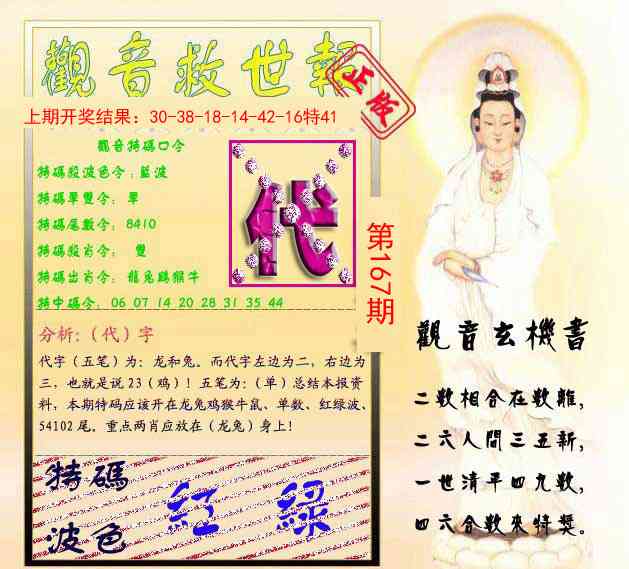 觀音救世報
正版
上期开奖结果：30-38-18-14-42-16特41
觀音特碼口令
特碼殺波色令：藍波
特碼單雙令：單
特碼尾數令：8410
特碼殺肖令：雙
特碼出肖令：龍兔鷄猴牛
特中碼令：06 07 14 20 28 31 35 44
代
第167期
分析：（代）字
代字（五笔）为：龙和兔。而代字左边为二，右边为
三，也就是说23（鸡）！五笔为：（单）总结本报资
料，本期特码应该开在龙兔鸡猴牛鼠、单数、红绿波、
54102尾。重点两肖应放在（龙兔）身上！
特碼
波色
紅 綠
觀音玄機書
二數相合在數難，
二六人間三五新，
一世清平四九數，
四六合數來特獎。